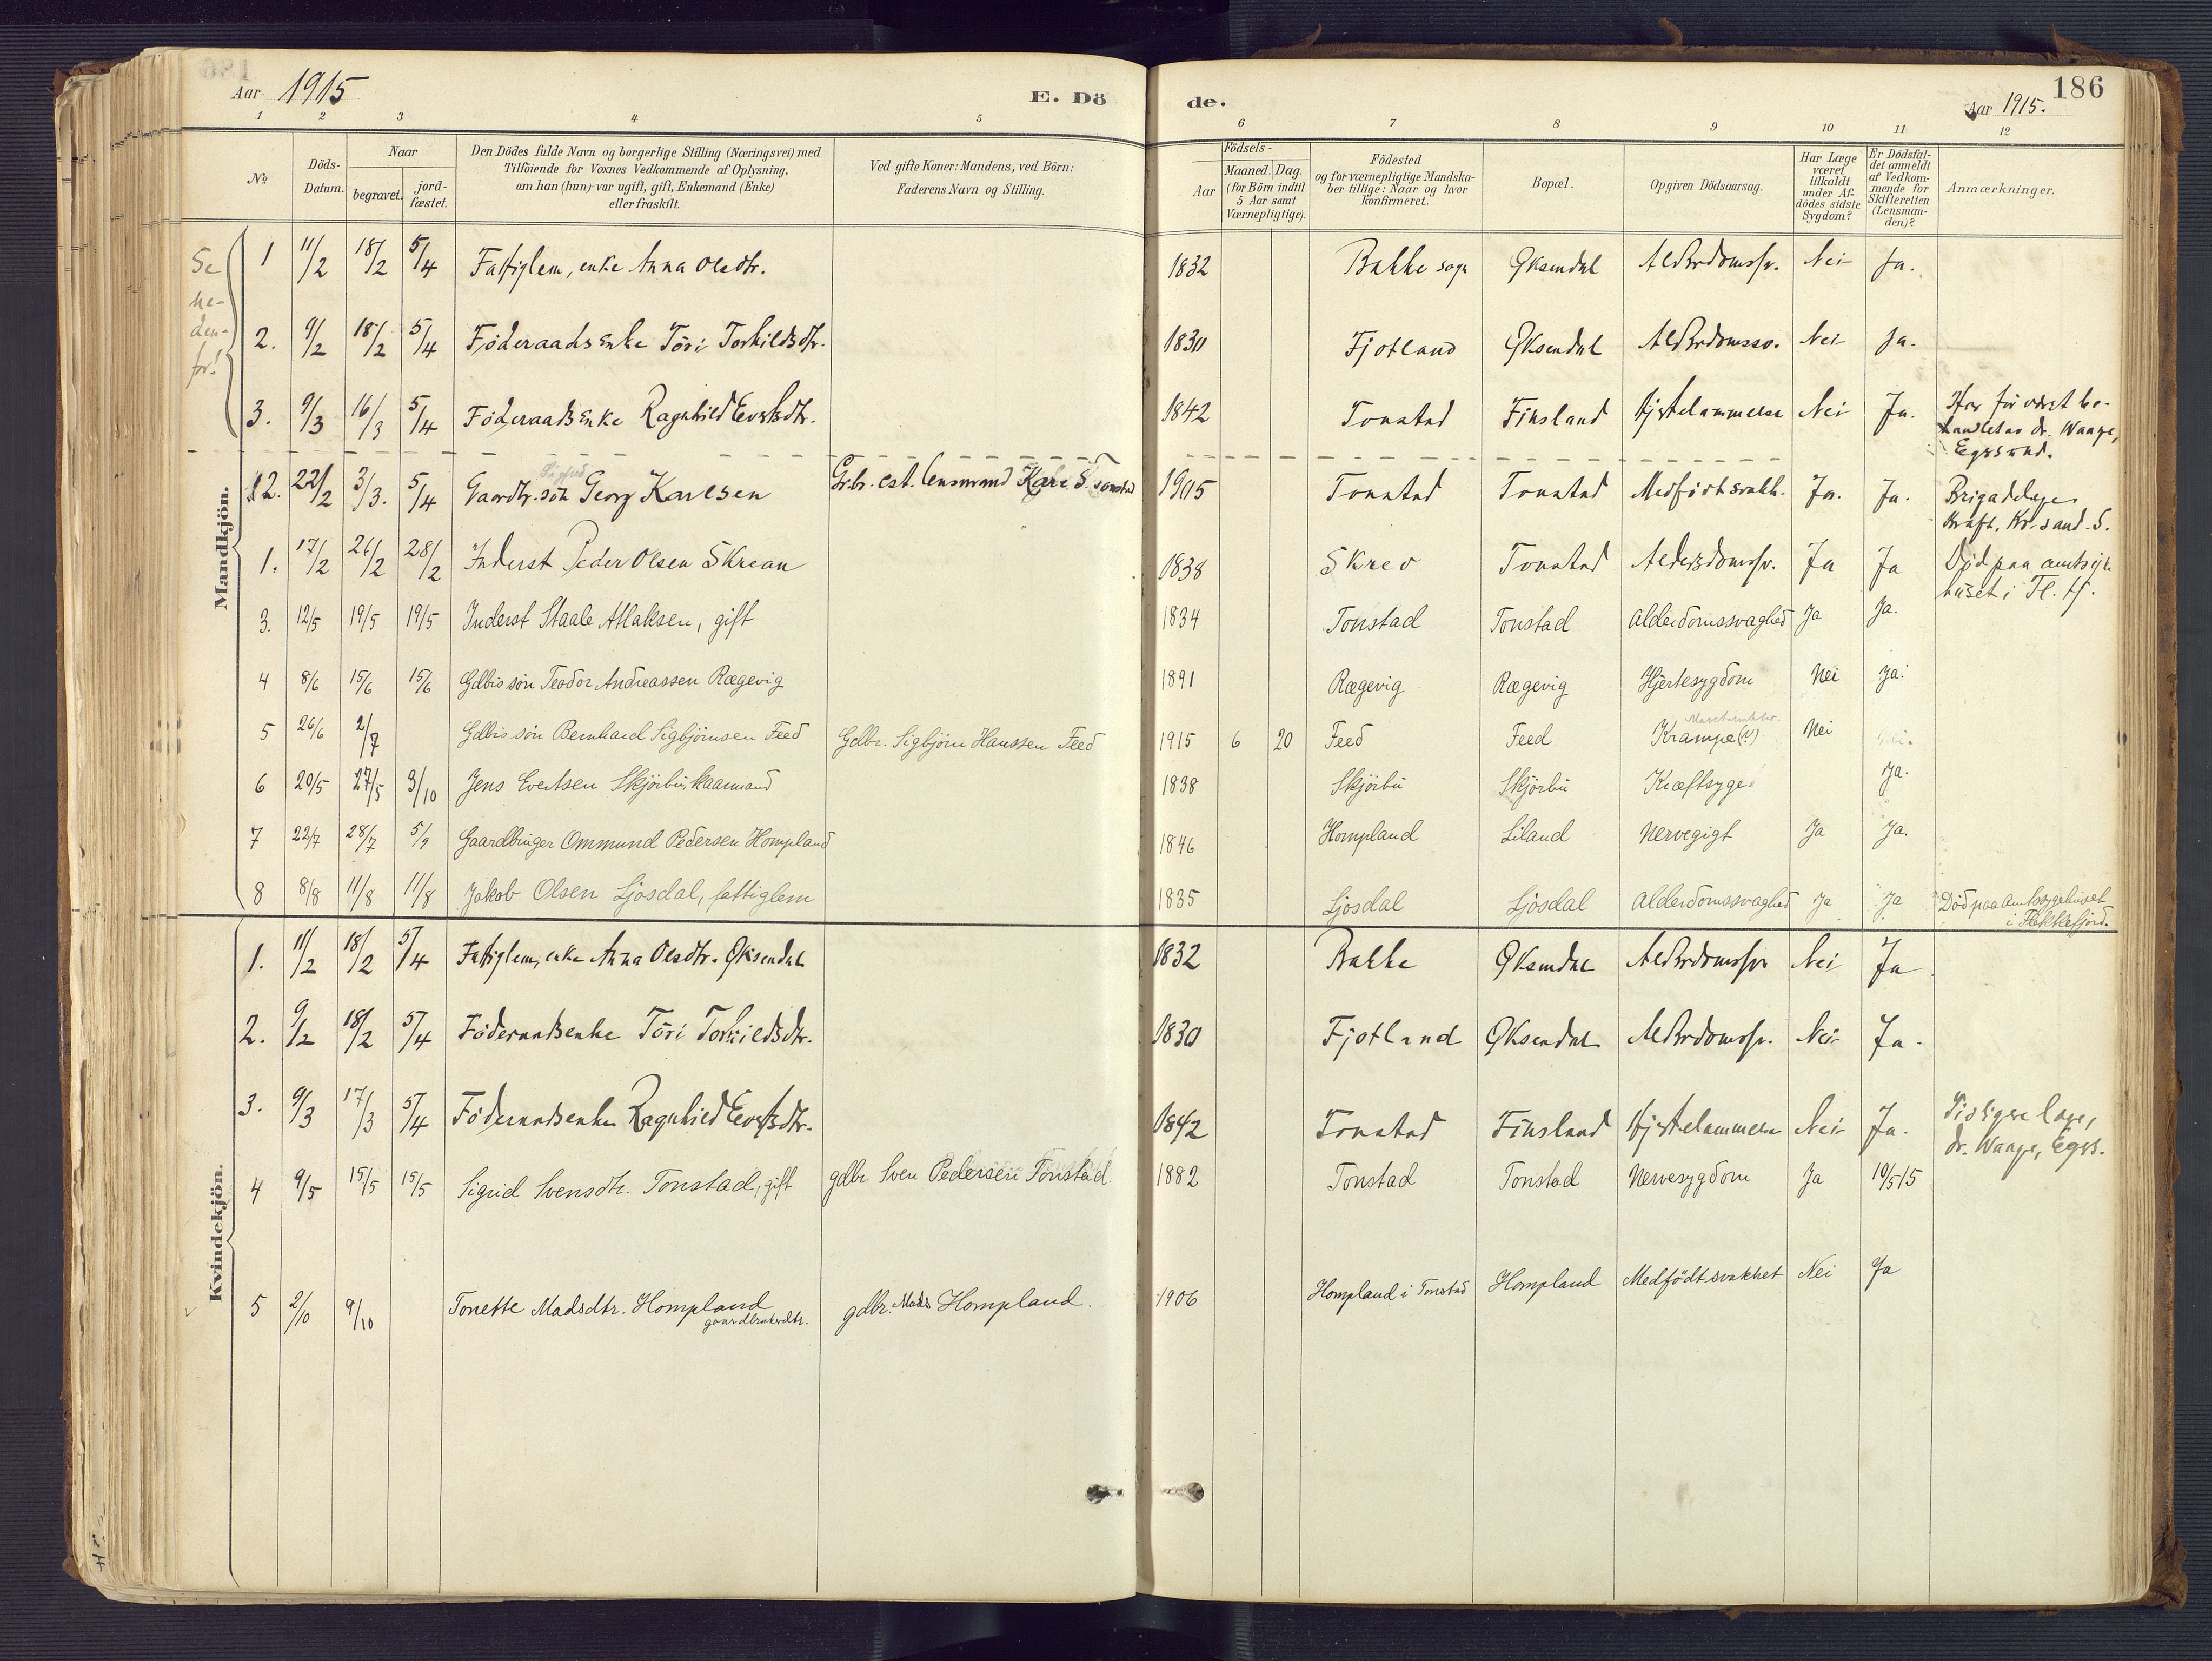 186
Aar 1915
E. Dö
de.
Aar 1915.
1 2 3 4 5 6 7 8 9 10 11 12
№
Döds-
Datum.
Naar
begravet.
jord-
fæstet.
Den Dödes fulde Navn og borgerlige Stilling (Næringsvei) med
Tilföiende for Voxnes Vedkommende af Oplysning,
om han (hun) var ugift, gift, Enkemand (Enke)
eller fraskilt.
Ved gifte Koner: Mandens, ved Börn:
Faderens Navn og Stilling.
Födsels-
Aar
Maaned. Dag.
(for Börn indtil
5 Aar samt
Værnepligtige).
Födested
og for værnepligtige Mandska-
ber tillige: Naar og hvor
konfirmeret.
Bopæl.
Opgiven Dödsaarsag.
Har Læge
været
tilkaldt
under Af-
dödes sidste
Sygdom?
Er Dödsfal-
det anmeldt
af Vedkom-
mende for
Skifteretten
(Lensman-
den)?
Anmærkninger.
Se
ne-
den-
for!
Mandkjön.
1 11/2 18/2 5/4 Fattiglem, enke Anna Olsdtr. 1832 Bakke sogn Øksendal Alderdomssv. Nei Ja.
2. 9/2 18/2 5/4 Føderaadsenke Töri Torkildsdtr. 1830 Fjotland Øksendal Alderdomssv. Nei Ja.
3. 9/3 16/3 5/4 Føderaadsenke Ragnhild Evertsdtr. 1842 Tonstad Finsland Hjertelammelse Nei Ja. Har før været be-
handlet av dr. Waage,
Egersund.
2. 22/2 3/3. 5/4 Gaardbr. søn Georg Karlsen Gr.br. cst. lensmand Karl S. Tonstad 1905 Tonstad Tonstad Medfødt svakh. Ja. Ja. Brigadelæge
Kraft, Kr.sand S.
1. 17/2 26/2 28/2 Inderst Peder Olsen Skrean 1838 Skreo Tonstad Aldersdomssv. Ja Ja Død paa amtsyke-
huset i Fl. fj.
3. 12/5 19/5 19/5 Inderst Staale Atlaksen, gift 1834 Tonstad Tonstad Alderdomssvaghed Ja Ja.
4 8/6 15/6 15/6 Gdbr.s søn Teodor Andreassen Rægevig 1891 Rægevig Rægevig Hjertesygdom Nei Ja.
5 26/6 2/7 Gdbr.s søn Bernhard Sigbjörnsen Feed Gdbr. Sigbjörn Hanssen Feed 1915 6 20 Feed Feed Krampe (?) Nei Nei.
6 20/5 27/5 3/10 Jens Evertsen Skjörbu, kaarmand 1838 Skjörbu Skjörbu Kræftsyge. Ja.
7 22/7 28/7 5/9 Gaardbruger Ommund Pedersen Hompland 1846 Hompland Liland Nervegigt Ja Ja.
8 8/8 11/8 11/8 Jakob Olsen Ljosdal, fattiglem 1835 Ljosdal Ljosdal Alderdomssvaghed Ja Ja Död paa Amtssygehuset
i Flekkefjord.
Kvindekjön.
1. 11/2 18/2 5/4 Fattiglem, enke Anna Olsdtr. Øksendal 1832 Bakke Øksendal Alderdomssv Nei Ja
2. 9/2 18/2 5/4 Føderaadsenke Töri Torkildsdtr. 1830 Fjotland Øksendal Alderdomssv. Nei Ja.
3. 9/3 17/3 5/4 Føderaadsenke Ragnhild Evertsdtr. 1842 Tonstad Finsland Hjertelammelse Nei Ja. Tidligere læge,
dr. Waage, Egrs.
4 9/5 15/5 15/5 Sigrid Svensdtr. Tonstad, gift gdbr. Sven Pedersen Tonstad. 1882 Tonstad Tonstad Nervesygdom Ja 10/5-15
5 2/10 9/10 Tonette Madsdtr. Hompland
gaardbrukerdtr.
gdbr. Mads Hompland. 1906 Hompland i Tonstad Hompland Medfödt svakhet Nei Ja